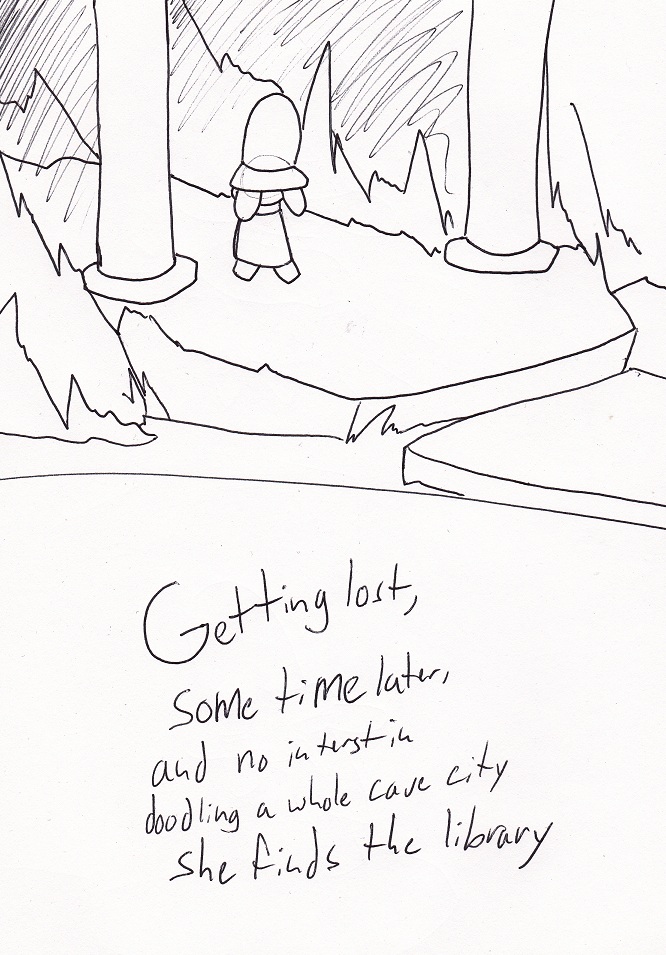 Getting lost,
some time later,
and no interst in
doodling a whole cave city
she finds the library